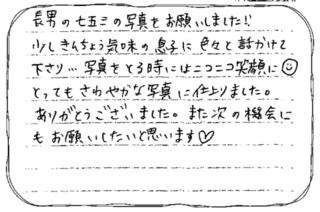 長男の七五三の写真をお願いしました!!
少しきんちょう気味の息子に色々と話かけて
下さり…写真をとる時にはニコニコ笑顔に
とってもさわやかな写真に仕上りました。
ありがとうございました。また次の機会に
もお願いしたいと思います♡